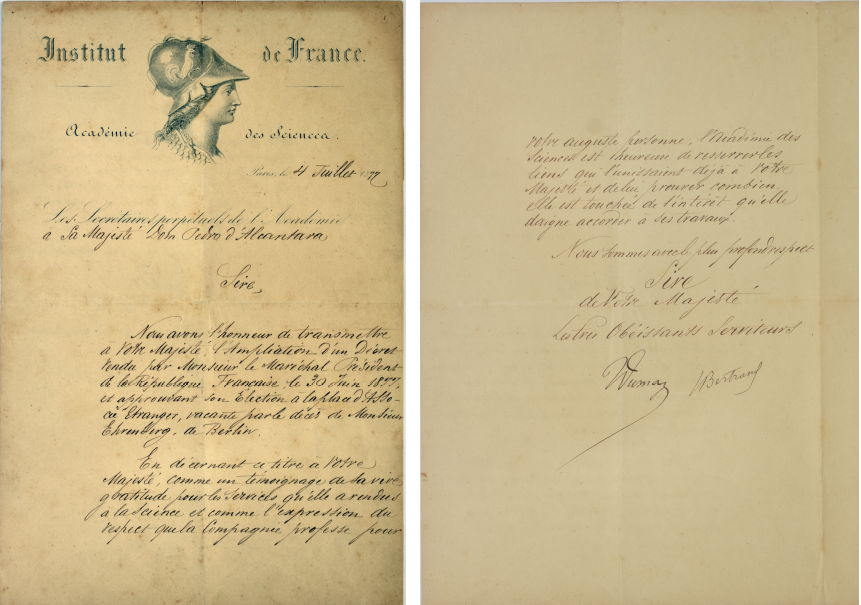 Institut de France.
Académie des Sciences.
Paris, le 4 Juillet 1877
Les Secrétaires perpétuels de l'Académie
à Sa Majesté Dom Pedro d'Alcantara
Sire,
Nous avons l'honneur de transmettre
à Votre Majesté, l'Ampliation d'un Décret
rendu par Monsieur le Maréchal Président
de la République Française le 30 Juin 1877,
et approuvant son Election à la place d'Asso-
cié Etranger, vacante par le décès de Monsieur
Ehrenberg, de Berlin.
En décernant ce titre à Votre
Majesté, comme un témoignage de sa vive
gratitude pour les services qu'elle a rendus
à la Science et comme l'expression du
respect que la Compagnie professe pour
votre auguste personne, l'Académie des
Sciences est heureuse de resserrer les
liens qui l'unissaient déjà à Votre
Majesté et de lui prouver combien
Elle est touchée de l'intérêt qu'elle
daigne accorder à ses travaux.
Nous sommes avec le plus profond respect
Sire
de Votre Majesté
Les très Obéissants Serviteurs
Dumas
J Bertrand